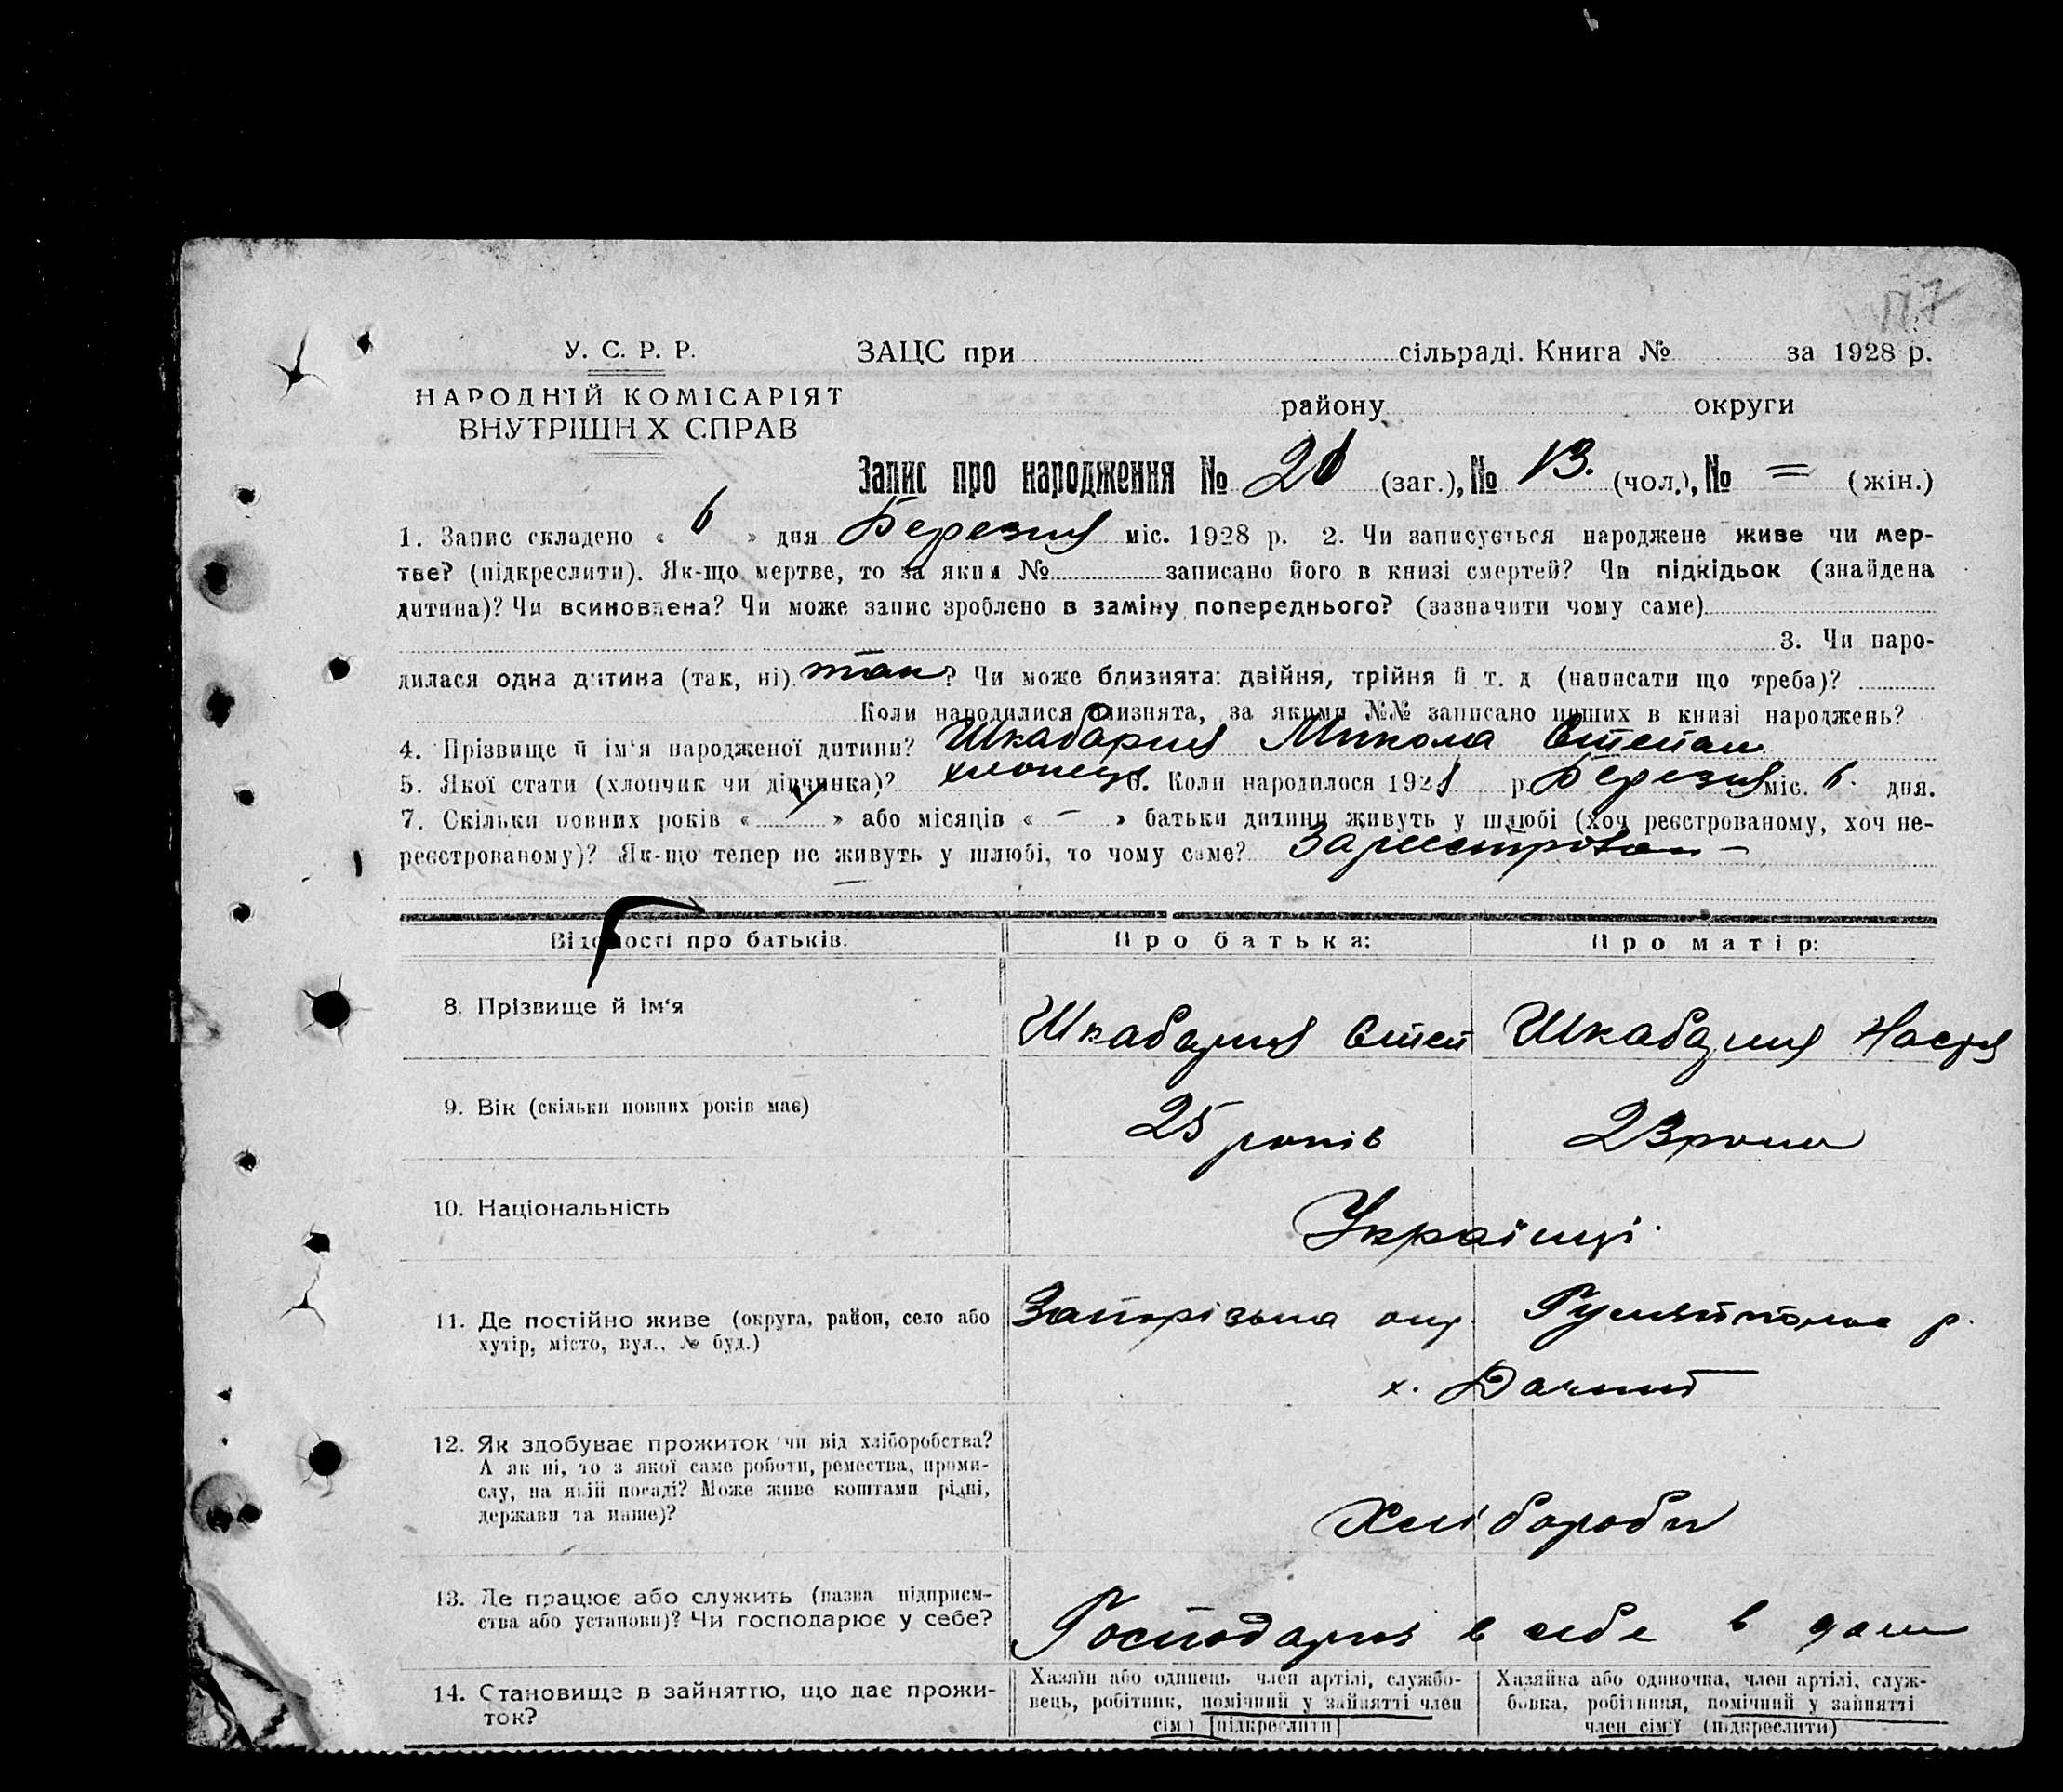 У. С. Р. Р.
НАРОДНІЙ КОМІСАРІЯТ
ВНУТРІШН Х СПРАВ
ЗАЦС при сільраді. Книга № за 1928 р.
району округи
Запис про народження № (заг.), № 13. (чол.), № = (жін.)
1. Запис складено « 6 » дня Березня міс. 1928 р. 2. Чи записується народжене живе чи мер-
тве? (підкреслити). Як-що мертве, то за яким № записано його в книзі смертей? Чи підкідьок (знайдена
дитина)? Чи всиновлена? Чи може запис зроблено в заміну попереднього? (зазначити чому саме)
3. Чи наро-
дилася одна дитина (так, ні) так? Чи може близнята: двійня, трійня й т. д (написати що треба)?
Коли народилися близнята, за якими №№ записано инших в книзі народжень?
4. Прізвище й ім‘я народженої дитини? Шкабарня Микола Степан
5. Якої стати (хлопчик чи дівчинка)? хлопець 6. Коли народилося 1928 р. Березня міс. 6. дня.
7. Скільки повних років « » або місяців « – » батьки дитини живуть у шлюбі (хоч реєстрованому, хоч не-
реєстрованому)? Як-що тепер не живуть у шлюбі, то чому саме?
Відомості про батьків.
Про батька:
Про матір:
8. Прізвище й ім‘я
Шкабарня Степ
Шкабарня Настя
9. Вік (скільки повних років має)
25 років
23 роки
10. Національність
Українці
11. Де постійно живе (округа, район, село або
хутір, місто, вул., № буд.)
Запорізька окр. р.
х.
12. Як здобуває прожиток чи від хліборобства?
А як ні, то з якої саме роботи, ремества, проми-
слу, на якій посаді? Може живе коштами рідні,
держави та инше)?
Хлібороби
13. Де працює або служить (назва підприєм-
ства або установи)? Чи господарює у себе?
в себе в дома
14. Становище в зайняттю, що дає прожи-
ток?
Хазяїн або одинець член артілі, службо-
вець, робітник, помічний у зайнятті член
сім‘ї (підкреслити)
Хазяйка або одиночка, член артілі, служ-
бовка, робітниця, помічний у зайнятті
член сім‘ї (підкреслити)